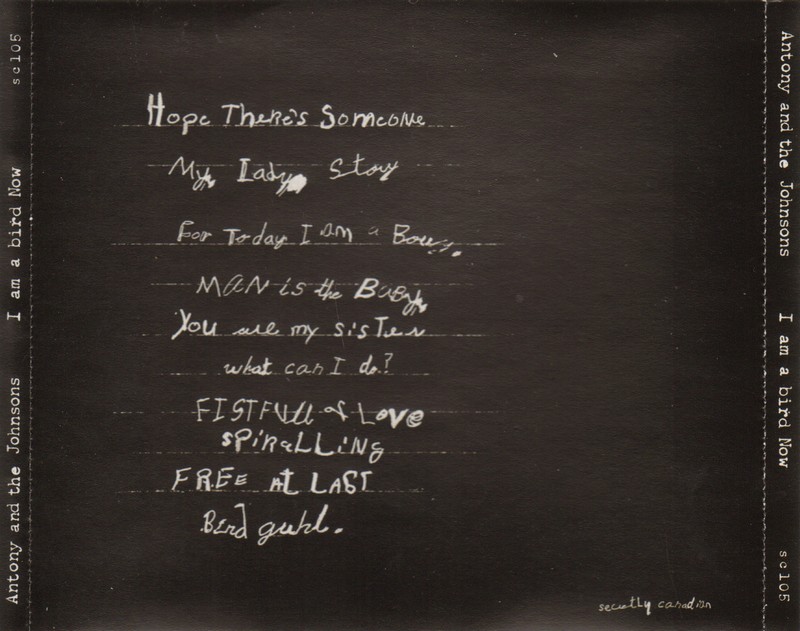 Antony and the Johnsons I am a bird Now sc105
Hope There's Someone
My Lady Story
For Today I am a Boy.
MAN is the Baby
You are my sister
what can I do?
FISTFUll of Love
SPiRaLLiNg
FREE At LAST
Bird guhl.
secretly canadian
Antony and the Johnsons I am a bird Now sc105